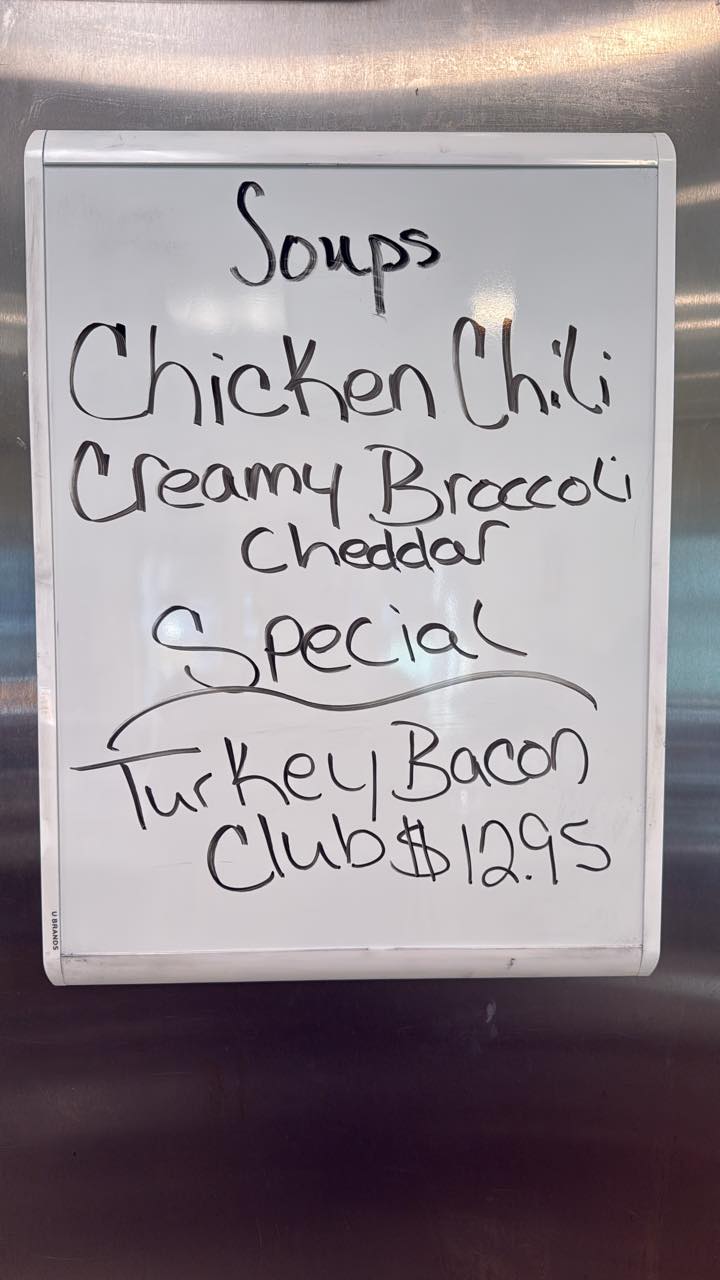 Soups
Chicken Chili
Creamy Broccoli
Cheddar
Special
Turkey Bacon
Club $12.95
U BRANDS